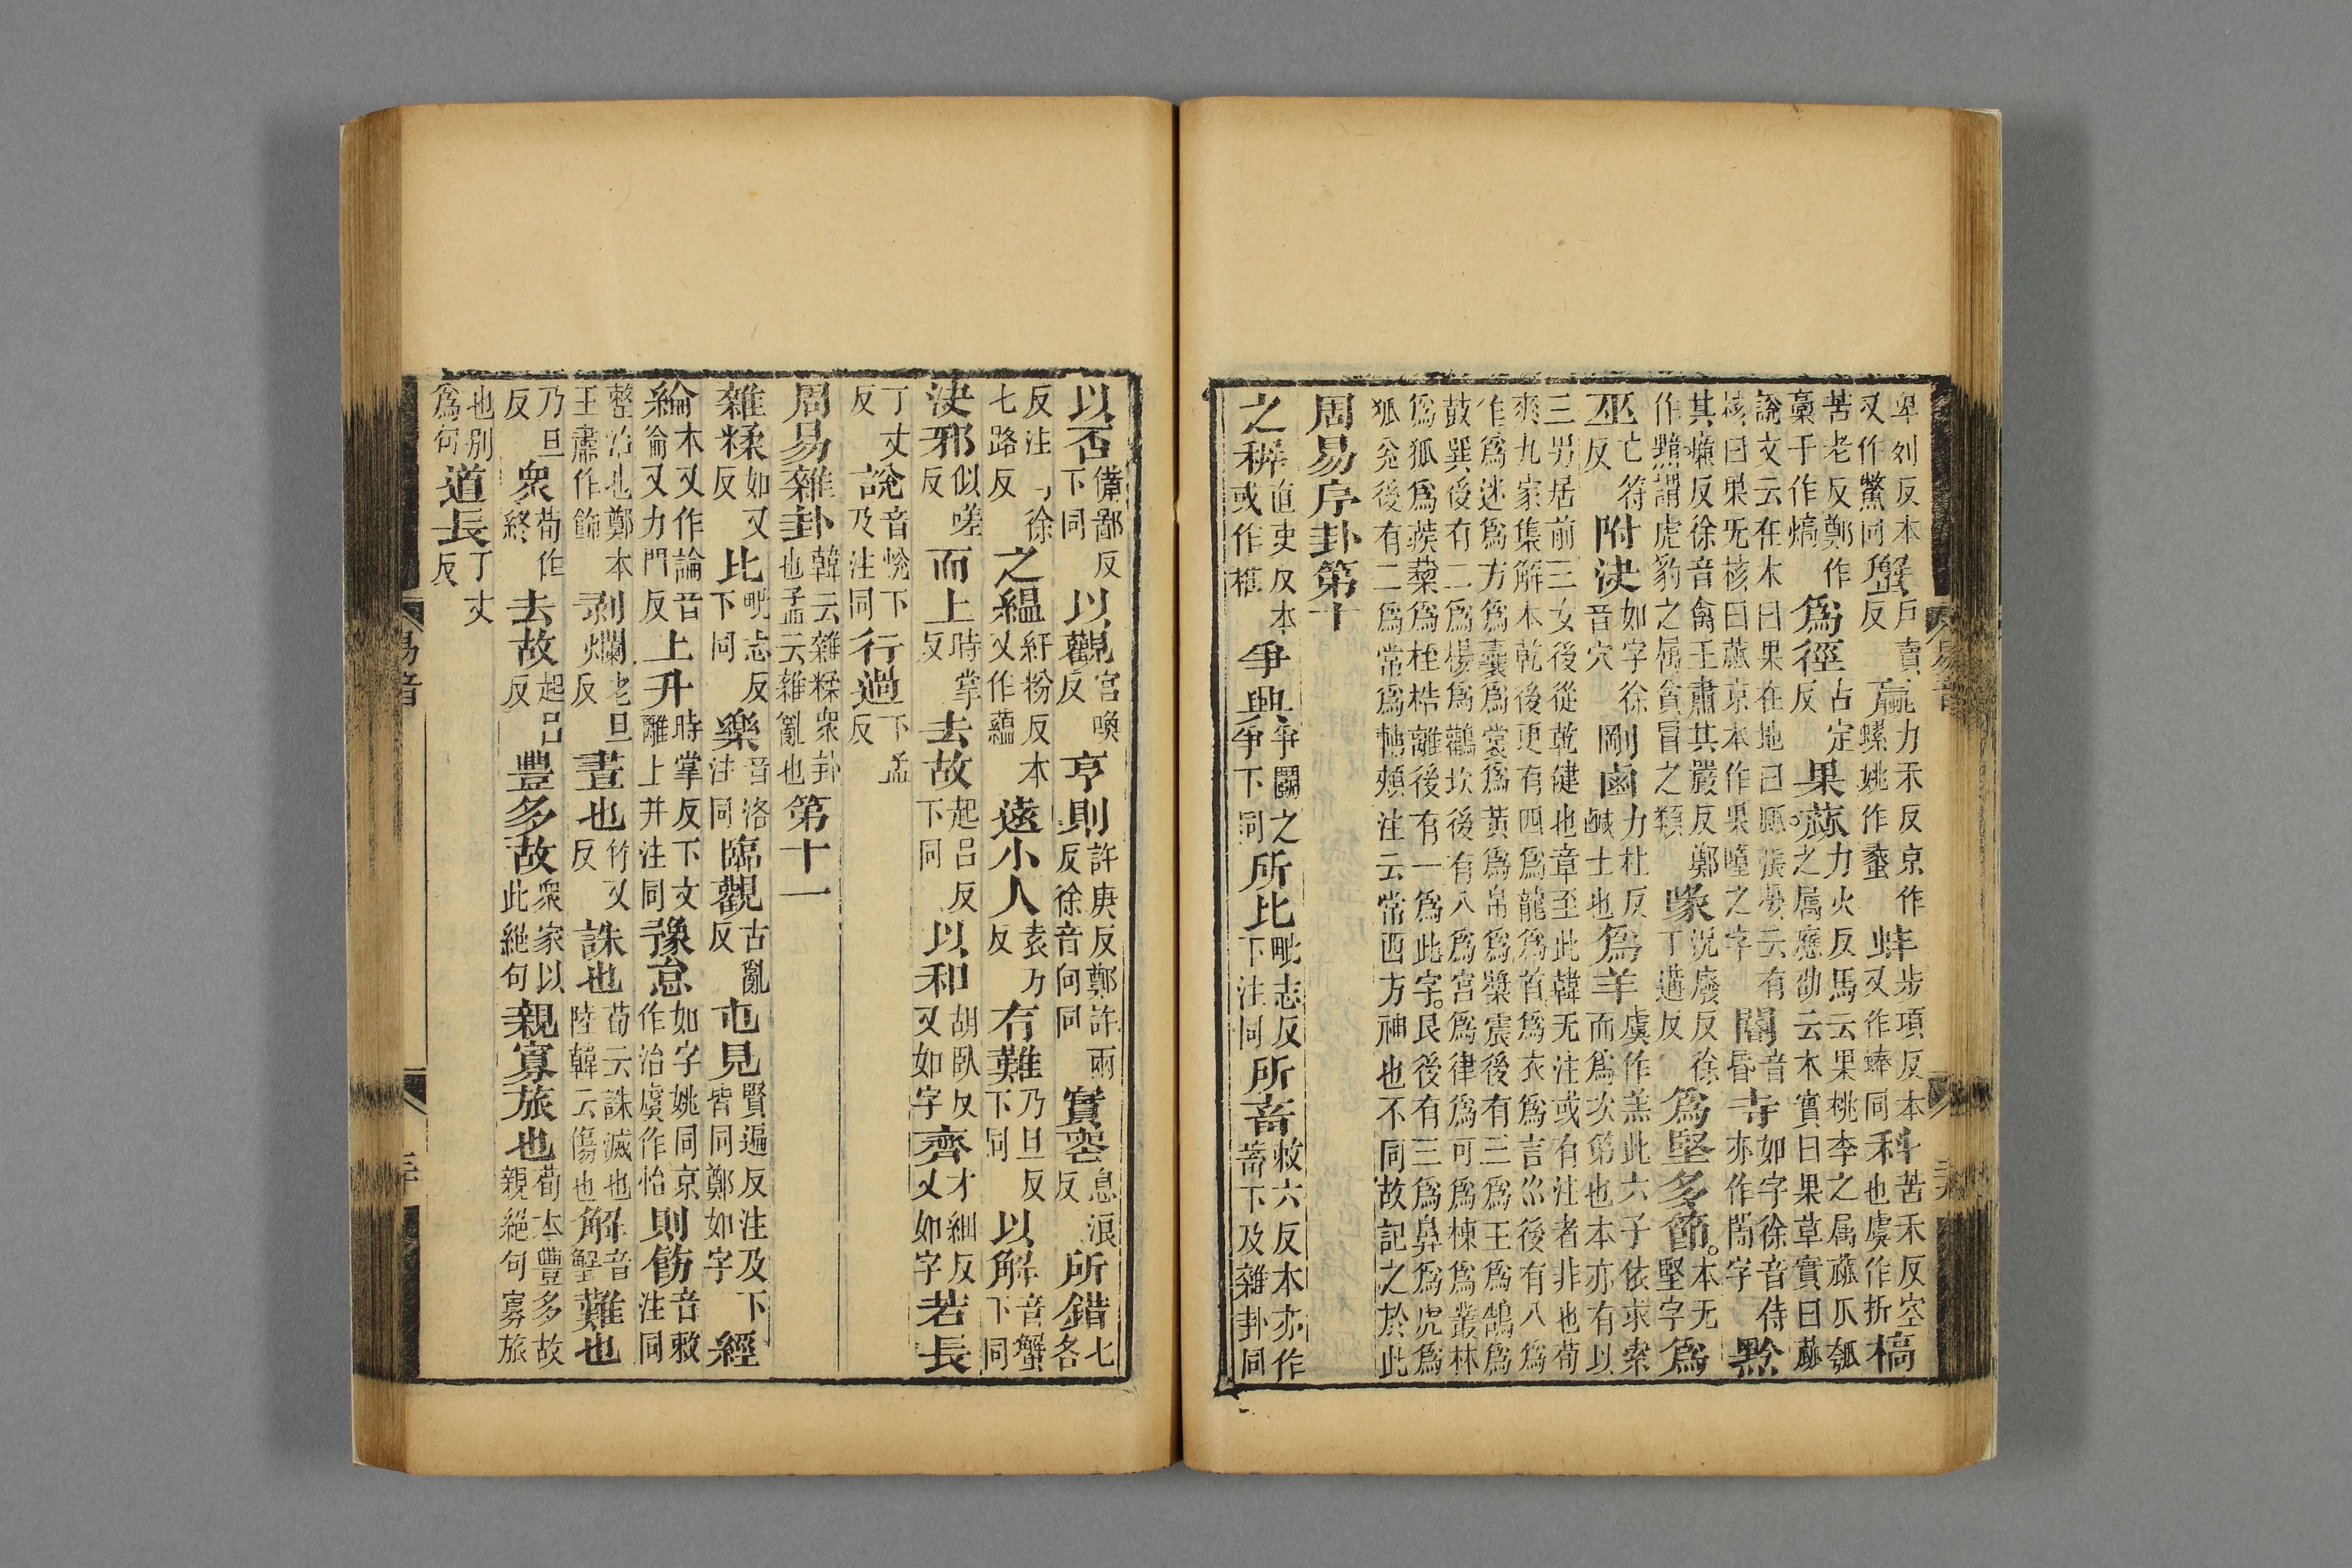 卑列反本又作鷩同蟹戶賣反蠃力禾反京作螺姚作蠡蚌步項反本又作蜯同科苦禾反空也虞作折槁
苦老反鄭作槀干作熇爲徑古定反果蓏力火反馬云果桃李之属蓏爪瓠之属應劭云木實曰果草實曰蓏
說文云在木曰果在地曰蓏張晏云有核曰果无核曰蓏京本作果墮之字閽音昬寺如字徐音侍亦作閽字黔
其廉反徐音禽王肅其嚴反鄭作黯謂虎豹之属貪冒之類喙況廢反徐丁遘反爲堅多節本无堅字爲
巫亡符反附決如字徐音穴剛鹵力杜反鹹土也爲羊虞作羔此六子依求索而爲次第也本亦有以
三男居前三女後從乾健也章至此韓无注或有注者非也荀
爽九家集解本乾後更有四爲龍爲首爲衣爲言巛後有八爲
作爲迷爲方爲囊爲裳爲黃爲帛爲漿震後有三爲王爲鵠爲
鼓巽後有二爲楊爲鸛坎後有八爲宮爲律爲可爲棟爲叢林
爲狐爲蒺蔾爲桎梏離後有一爲此字艮後有三爲鼻爲虎爲
狐兌後有二爲常爲輔頰注云常西方神也不同故記之於此
周易序卦第十
之稺直吏反本或作稚爭興爭鬬之爭下同所比毗志反下注同所畜敕六反本亦作蓄下及雜卦同
以否備鄙反下同以觀官喚反亨則許庚反鄭許兩反徐音向同實喪息浪反所錯七各
反注同徐七路反之縕紆粉反本又作蘊遠小人袁万反有難乃旦反下同以解音蟹下同
決邪似嗟反而上時掌反去故起呂反下同以和胡臥反又如字齊才細反又如字若長
丁丈反說音悅下及注同行過下孟反
周易雜卦韓云雜糅衆卦也孟云雜亂也第十一
雜糅如又反比毗志反下同樂音洛注同臨觀古亂反屯見賢遍反注及下皆同鄭如字經
綸本又作論音倫又力門反上升時掌反下文離上并注同豫怠如字姚同京作治虞作怡則飭音敕注同
整治也鄭本王肅作飾剥爛老旦反晝也竹又反誅也荀云誅滅也陸韓云傷也解音蟹難也
乃旦反衆荀作終去故起呂反豐多故衆家以此絕句親寡旅也荀本豐多故親絕句寡旅
也別爲句道長丁丈反
易音